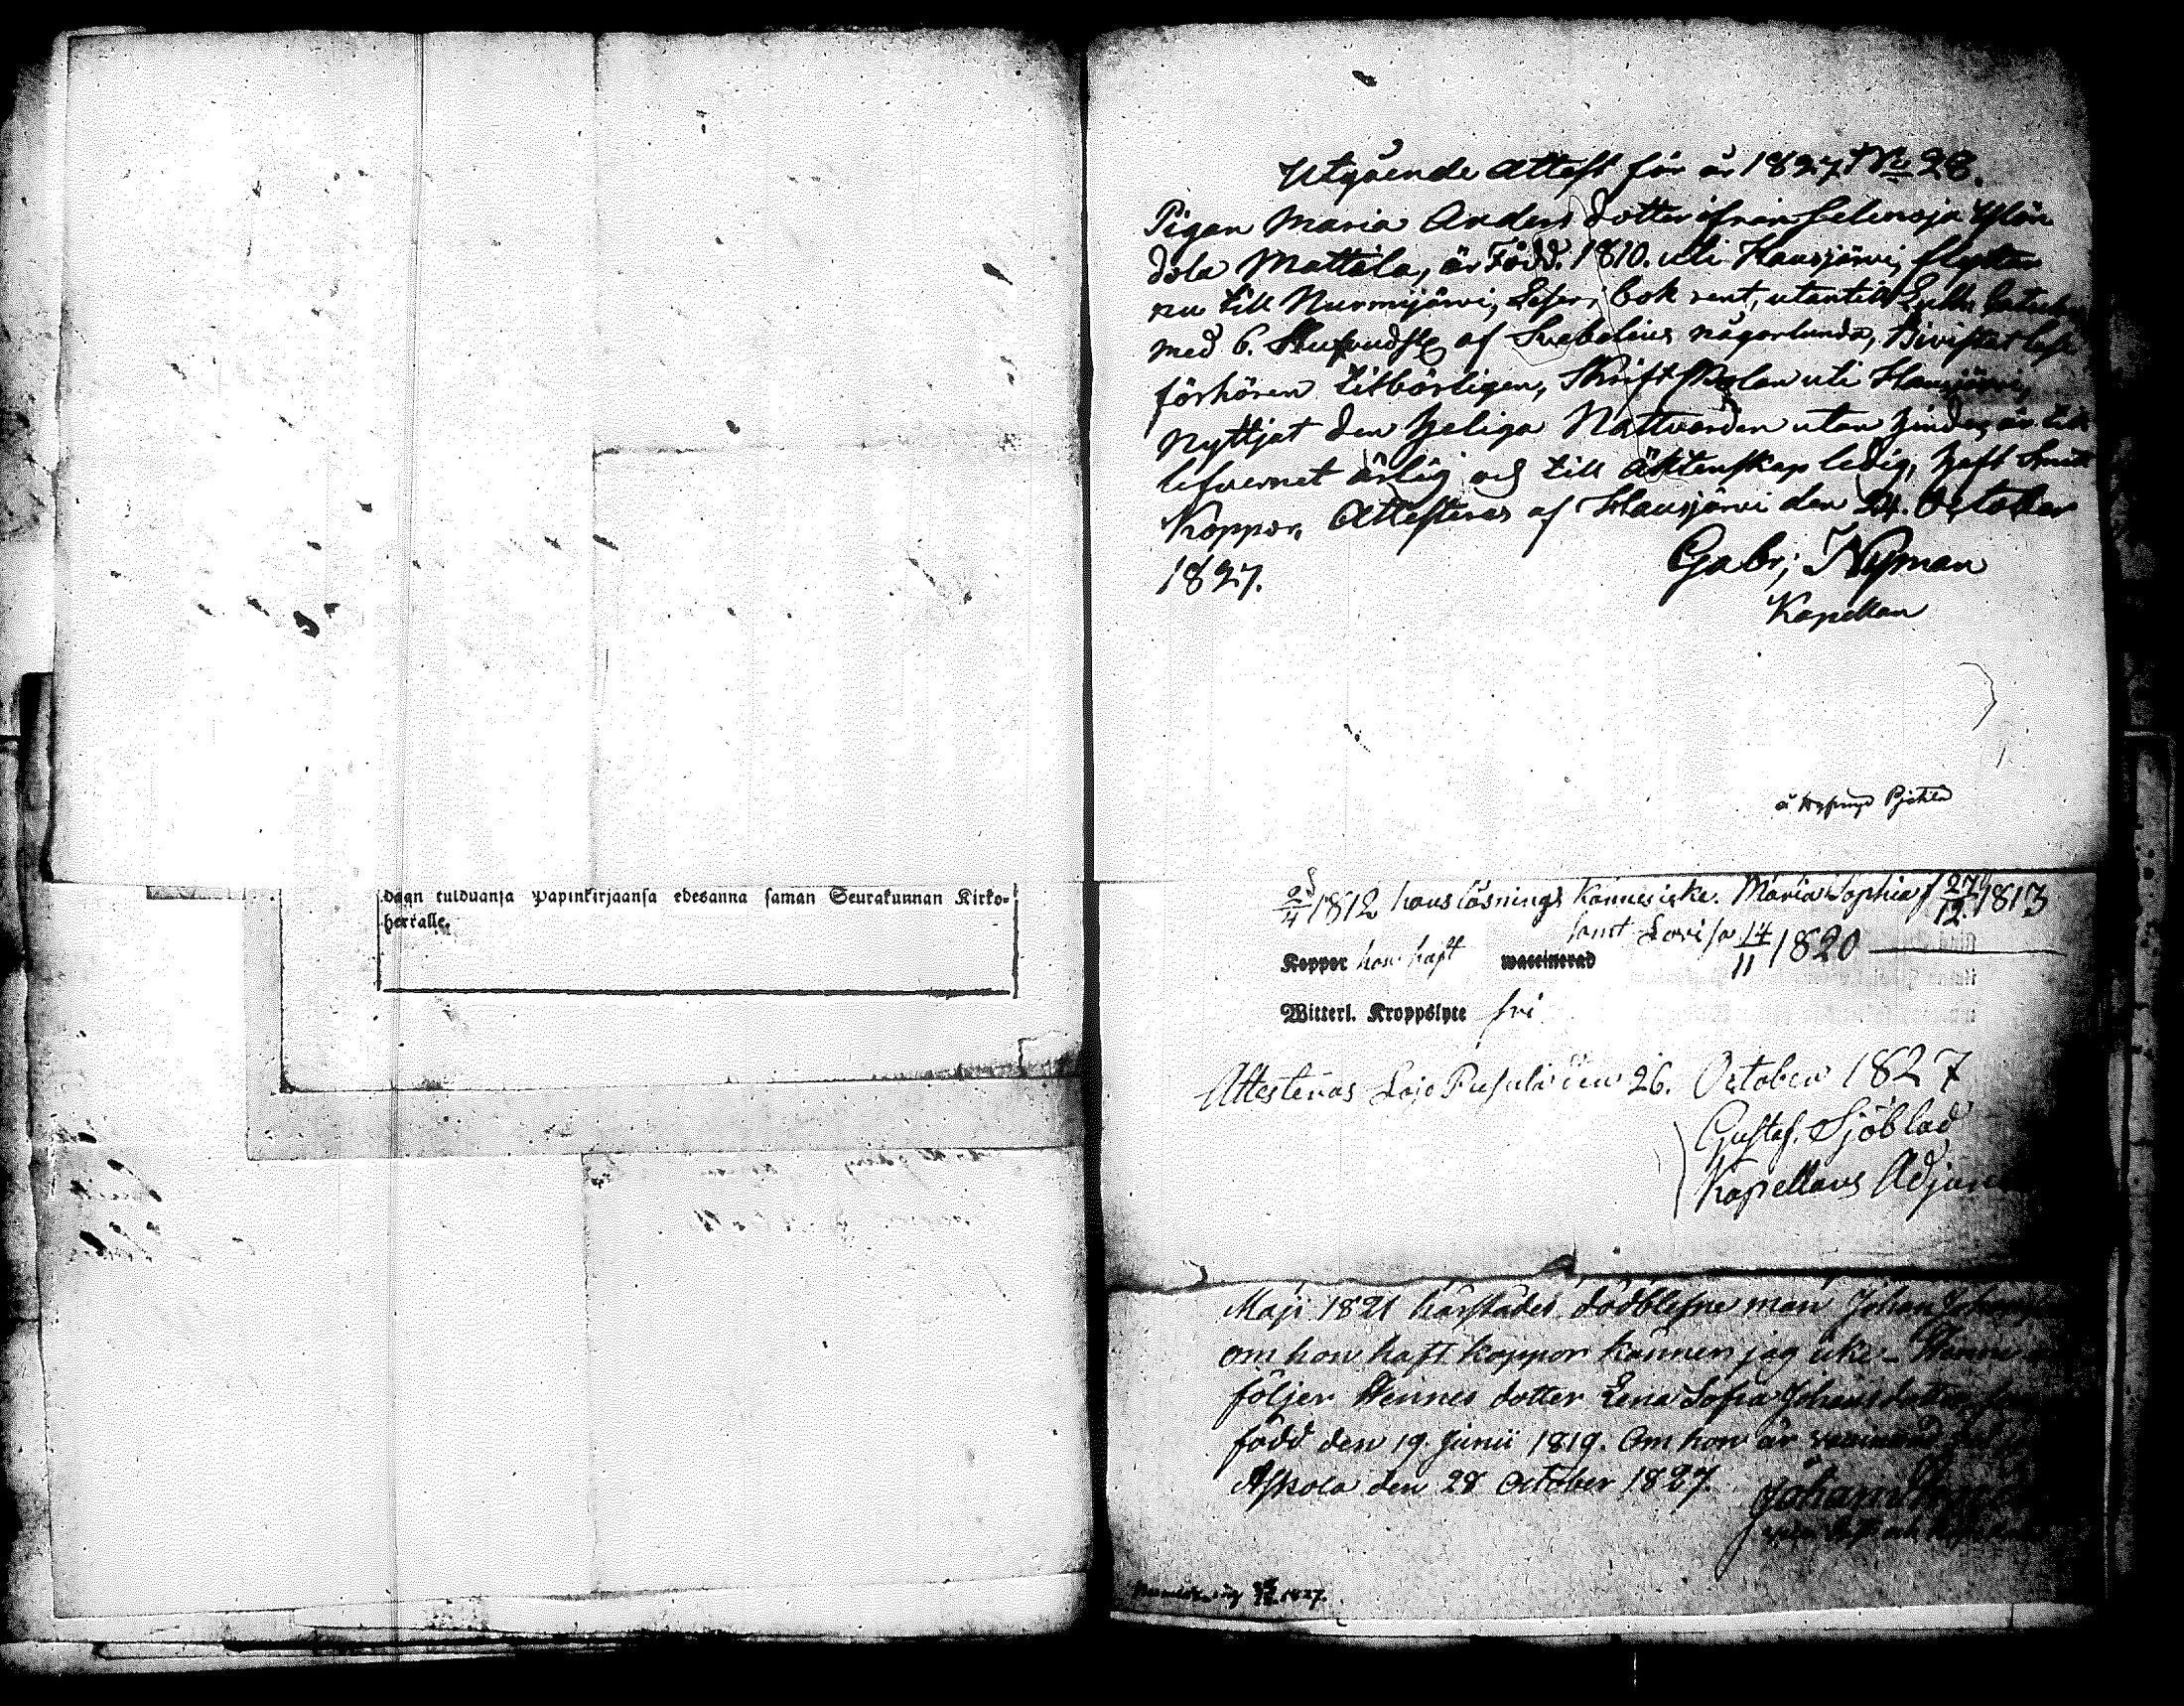 dagn tulduansa Papinkirjaansa edesanna saman Seurakunnan Kirko-
herralle.
Utgående Attest för år 1827 No 28.
Pigan Maria Anders dotter ifrån
dola Mattila, är Född. 1810. uti Hausjärvi, flyttar
nu till Nurmijärvi, Läser i bok rent, utantill Luth. 
med 6. Hufvudst. af Svebelius någorlunda, Bivistat läse
förhören tillbörligen, Skriftskolan uti Hausjärvi,
Nyttjat den Heliga Nattvarden utan hinder, är till
lefvernet ärlig och till äktenskap ledig, haft Smitt
Koppor, Attesteras af Hausjärvi den 24. October
1827.
Gabr; Nyman
Kapellan
å
4/1812 hans läsnings kännes icke. Maria Sophia f 27/12 1813
samt Lovisa 14/11 1820
Koppor hon haft waccinerad
Witterl. Kroppslyte fri
Attesteras Lojo Pusula den 26. October 1827
Gustaf. Sjöblad
Kapellans Adjunct
Maji 1821 härstädes dödblefne man Johan
om hon haft koppor känner jag icke - Henne
följer Hennes dotter Lena Sofia Johansdotter,
född den 19. Junii 1819. Om hon är vaccinerad
Askola den 28 October 1827.
Johan
1827.